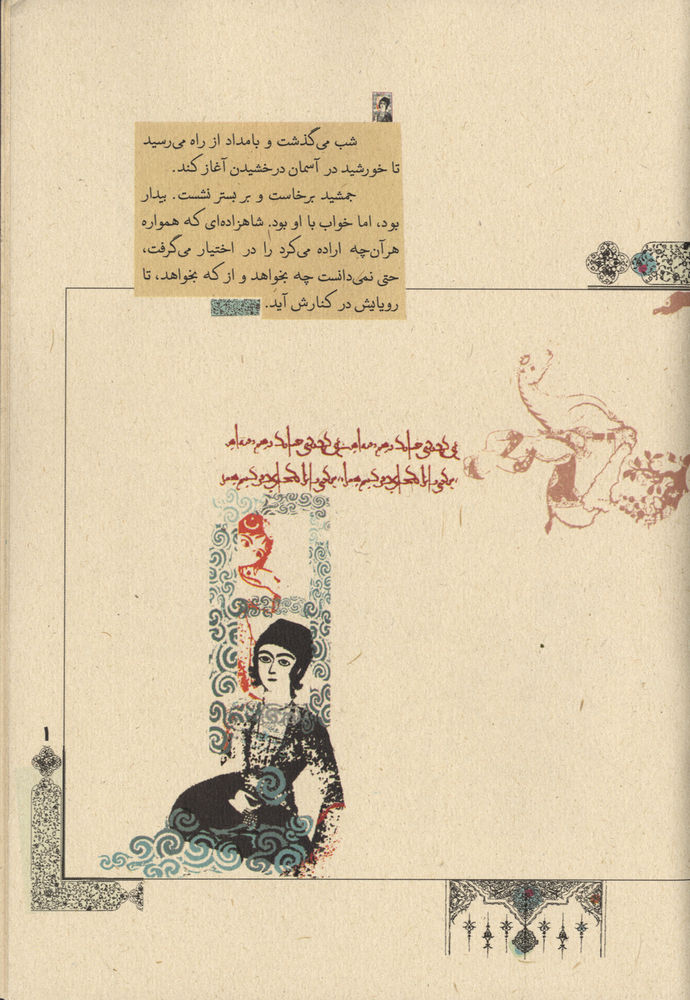 شب می‌گذشت و بامداد از راه می‌رسید
تا خورشید در آسمان درخشیدن آغاز کند.
جمشید برخاست و بر بستر نشست. بیدار
بود، اما خواب با او بود. شاهزاده‌ای که همواره
هرآن‌چه اراده می‌کرد را در اختیار می‌گرفت،
حتی نمی‌دانست چه بخواهد و از که بخواهد، تا
رویایش در کنارش آید.
۱